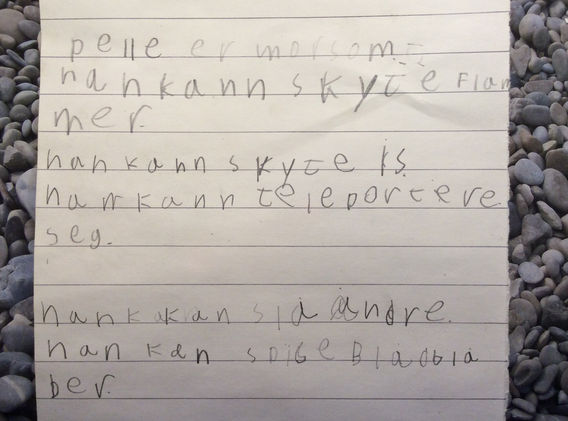 pelle er morsom
han kann skyte Flam
mer.
han kann skyte is.
han kann teleportere
seg.
han kan slå andre.
han kan spise Blåbblå
ber.